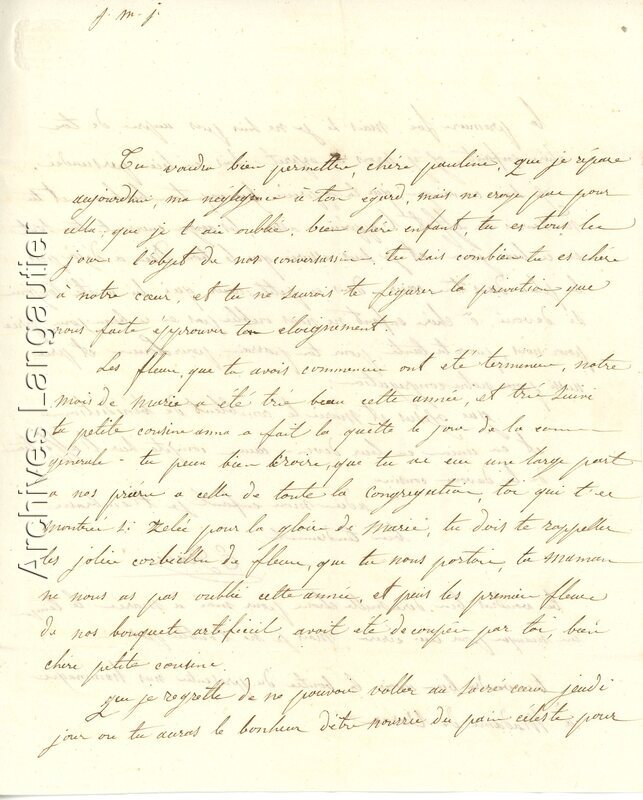 j. m. j.
Tu voudra bien permettre, chère pauline, que je répare
aujourdhui, ma négligence à ton égard, mais ne croye pas pour
cella, que je t'aie oublié, bien chère enfant, tu es tous les
jours l'objet de nos conversassion, tu sais combien tu es chère
à notre cœur, et tu ne saurois te figurer la privation que
nous faite épprouver ton eloignement.
Les fleurs, que tu avois commencées ont été terminées, notre
mois de marie a été très beau cette année, et très suivi
ta petite cousine anna a fait la quette le jour de la comm
générale - tu peux bien croire, que tu as eu une large part
a nos prières a cella de toute la congrégation, toi qui t'es
montrée si zelée pour la gloire de marie, tu dois te rappeller
les jolies corbeilles de fleurs, que tu nous portois, ta maman
ne nous as pas oublié cette année, et puis les premières fleurs
de nos bouquets artificiel avoit été decoupées par toi, bien
chère petite cousine.
Que je regrette de ne pouvoir voller au sacré cœur jeudi
jour ou tu auras le bonheur d'être nourrie du pain céleste pour
Archives Langautier